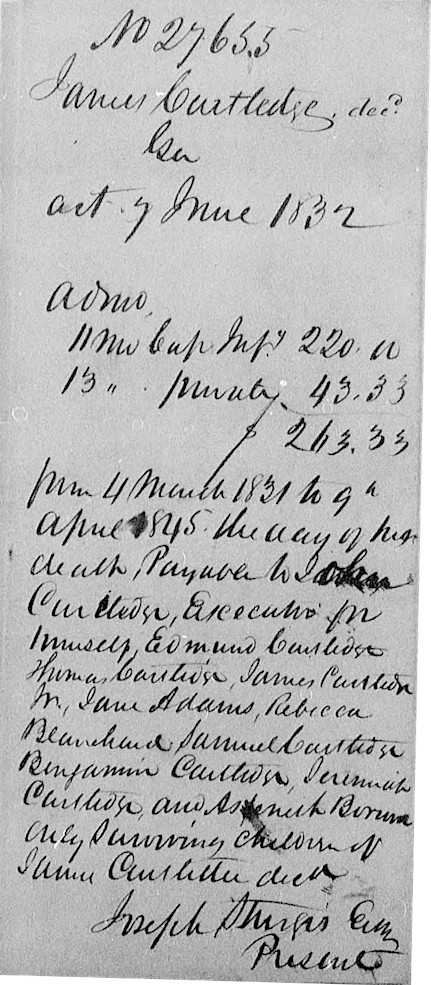 No 27655
James Cartledge, decd
Geo
act 7 June 1832
admd
11 Mo Capt Infy 220.00
13 " private 43.33
$ 263.33
from 4 March 1831 to 9th
April 1845 the day of his
death, Payable to John
Cartledge, Executor for
himself, Edmund Cartledge
Thomas Cartledge, James Cartledge
Jr., Jane Adams, Rebecca
Blanchard Samuel Cartledge
Benjamin Cartledge, Jeremiah
Cartledge, and Asenath Borum
only surviving children of
James Cartledge decd
Joseph Sturgis Esq
Present